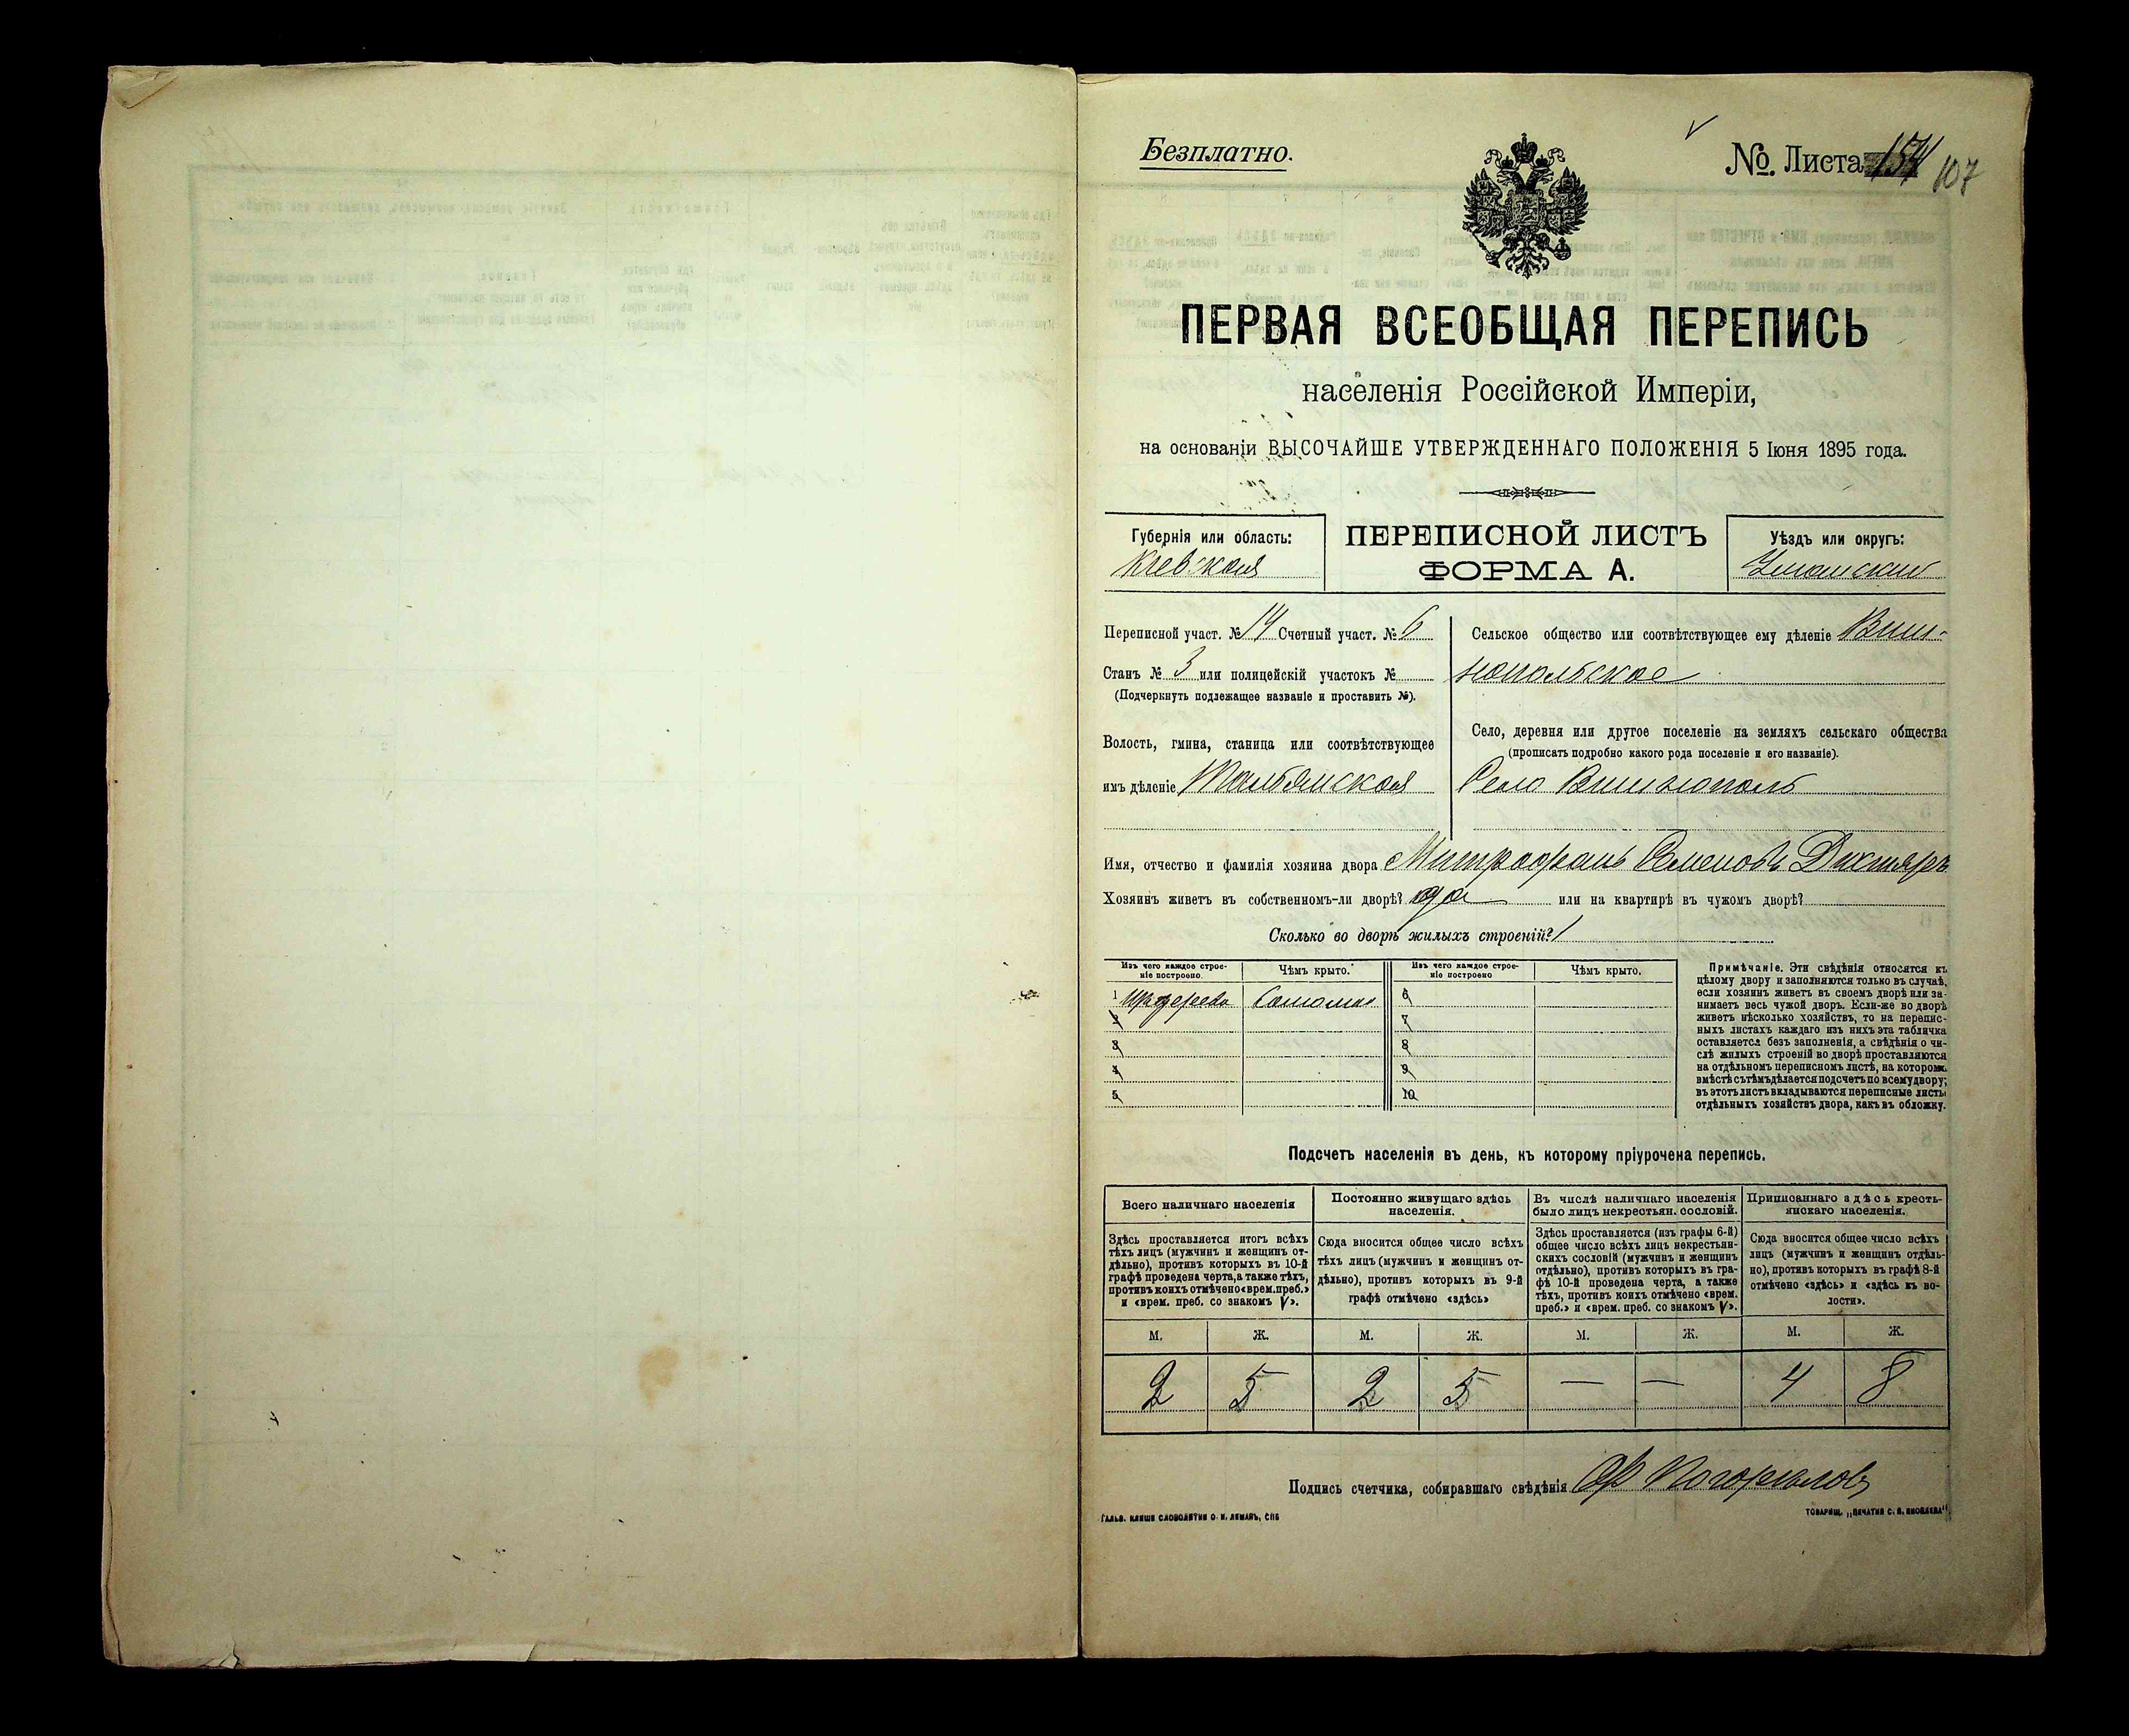 Безплатно.
№ Листа 154 107
ПЕРВАЯ ВСЕОБЩАЯ ПЕРЕПИСЬ
населенія Россійской Имперіи,
на основаніи ВЫСОЧАЙШЕ УТВЕРЖДЕННАГО ПОЛОЖЕНІЯ 5 Іюня 1895 года.
Губернія или область:
Кіевская
ПЕРЕПИСНОЙ ЛИСТЪ
ФОРМА А.
Уѣздъ или округъ:
Уманскій
Переписной участ. № 14 Счетный участ. № 6
Станъ № 3 или полицейскій участокъ №
(Подчеркнуть подлежащее названіе и проставить №).
Волость, гмина, станица или соотвѣтствующее
имъ дѣленіе Тальянская
Сельское общество или соотвѣтствующее ему дѣленіе Виш-
нопольское
Село, деревня или другое поселеніе на земляхъ сельскаго общества
(прописать подробно какого рода поселеніе и его названіе).
Село Вишнополь
Имя, отчество и фамилія хозяина двора Митрофанъ Семеновъ Дихтяръ
Хозяинъ живетъ въ собственномъ-ли дворѣ? да или на квартирѣ въ чужомъ дворѣ?
Сколько во дворѣ жилыхъ строеній? 1
Изъ чего каждое строе-
ніе построено.
Чѣмъ крыто.
Изъ чего каждое строе-
ніе построено
Чѣмъ крыто.
1 Изъ дерева Соломой 6
2 7
3 8
4 9
5 10
Примѣчаніе. Эти свѣдѣнія относятся къ
цѣлому двору и заполняются только въ случаѣ,
если хозяинъ живетъ въ своемъ дворѣ или за-
нимаетъ весь чужой дворъ. Если-же во дворѣ
живетъ нѣсколько хозяйствъ, то на перепис-
ныхъ листахъ каждаго изъ нихъ эта табличка
оставляется безъ заполненія, а свѣдѣнія о чи-
слѣ жилыхъ строеній во дворѣ проставляются
на отдѣльномъ переписномъ листѣ, на которомъ
вмѣстѣ съ тѣмъ дѣлается подсчетъ по всему двору;
въ этотъ листъ вкладываются переписные листы
отдѣльныхъ хозяйствъ двора, какъ въ обложку.
Подсчетъ населенія въ день, къ которому пріурочена перепись.
Всего наличнаго населенія
Постоянно живущаго здѣсь
населенія.
Въ числѣ наличнаго населенія
было лицъ некрестьян. сословій.
Приписаннаго здѣсь кресть-
янскаго населенія.
Здѣсь проставляется итогъ всѣхъ
тѣхъ лицъ (мужчинъ и женщинъ от-
дѣльно), противъ которыхъ въ 10-й
графѣ проведена черта, а также тѣхъ,
противъ коихъ отмѣчено «врем. преб.»
и «врем. преб. со знакомъ V».
Сюда вносится общее число всѣхъ
тѣхъ лицъ (мужчинъ и женщинъ от-
дѣльно), противъ которыхъ въ 9-й
графѣ отмѣчено «здѣсь»
Здѣсь проставляется (изъ графы 6-й)
общее число всѣхъ лицъ некрестьян-
скихъ сословій (мужчинъ и женщинъ
отдѣльно), противъ которыхъ въ гра-
фѣ 10-й проведена черта, а также
тѣхъ, противъ коихъ отмѣчено «врем.
преб.» и «врем. преб. со знакомъ V».
Сюда вносится общее число всѣхъ
лицъ (мужчинъ и женщинъ отдѣль-
но), противъ которыхъ въ графѣ 8-й
отмѣчено «здѣсь» и «здѣсь въ во-
лости».
М. Ж. М. Ж. М. Ж. М. Ж.
2 5 2 5 — — 4 8
Подпись счетчика, собиравшаго свѣдѣнія Погорѣловъ
ГАЛЬВ. КЛИШЕ СЛОВОЛИТНИ О. И. ЛЕМАНЪ, СПБ
ТОВАРИЩ. „ПЕЧАТНЯ С. П. ЯКОВЛЕВА"